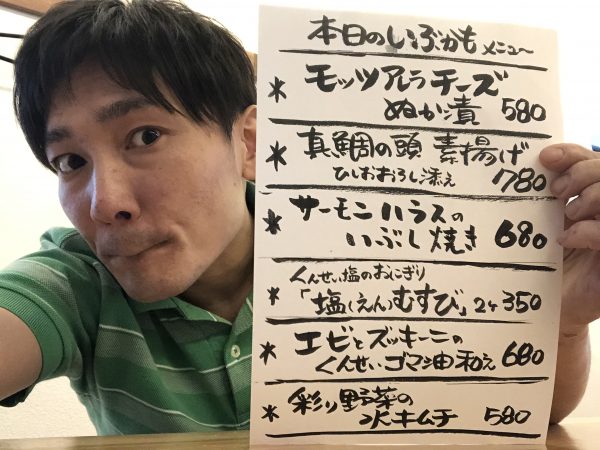 本日のいぶかもメニュー
* モッツアレラチーズ
ぬか漬 580
* 真鯛の頭 素揚げ
ひしおおろし添え 780
* サーモンハラスの
いぶし焼き 680
くんせい塩のおにぎり
* 「塩(えん)むすび」2ケ 350
* エビとズッキーニの
くんせいゴマ油和え 680
* 彩り野菜の
水キムチ 580